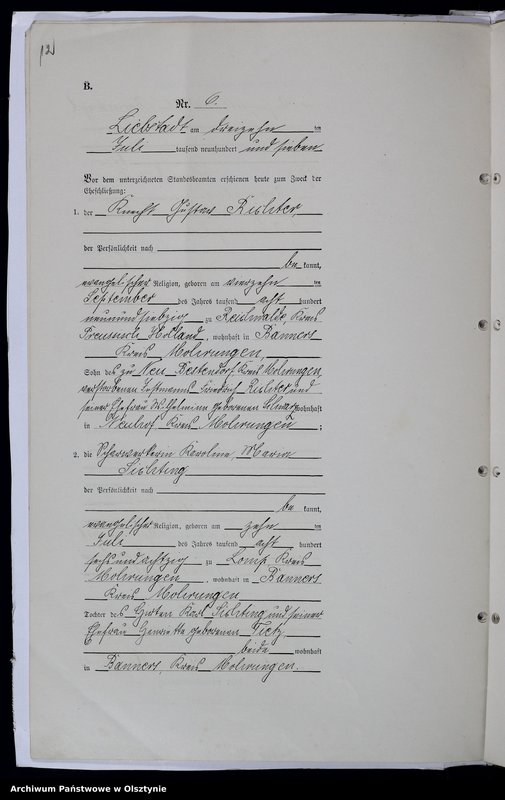 121
B.
Nr. 6.
Liebstadt am dreizehn ten
Juli tausend neunhundert und sieben
Vor dem unterzeichneten Standesbeamten erschienen heute zum Zweck der
Eheschließung:
1. der Knecht Gustav Richter
der Persönlichkeit nach
be kannt,
evangelischer Religion, geboren am vierzehn ten
September des Jahres tausend acht hundert
neunundsiebzig zu Reichwalde, Kreis
Preussisch Holland, wohnhaft in Banners
Kreis Mohrungen,
Sohn des zu Neu Bestendorf Kreis Mohrungen
verstorbenen Instmanns Friedrich Richter und
seiner Ehefrau Wilhelmine geborenen wohnhaft
in Neuhof Kreis Mohrungen ;
2. die Scharwerkerin Karoline, Maria
Sichting
der Persönlichkeit nach
be kannt,
evangelischer Religion, geboren am zehn ten
Juli des Jahres tausend acht hundert
sechsundachtzig zu Lomp Kreis
Mohrungen, wohnhaft in Banners
Kreis Mohrungen
Tochter des Hirten Karl Sichting und seiner
Ehefrau Henriette geborenen Tietz
beide wohnhaft
in Banners, Kreis Mohrungen.
Archiwum Państwowe w Olsztynie